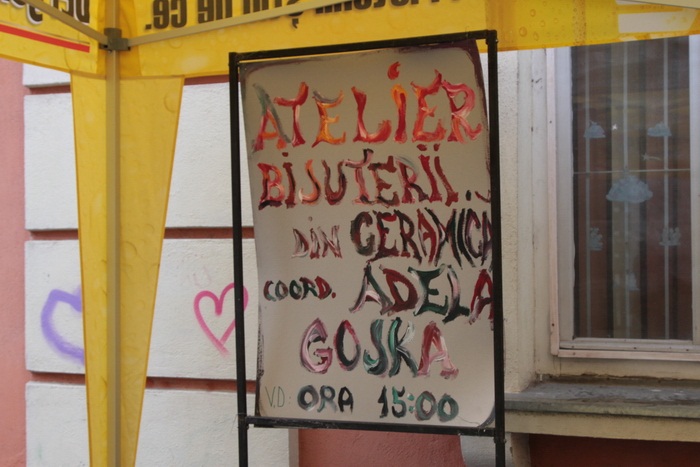 ATELIER
BIJUTERII.
DIN CERAMICA
COORD. ADELA
GOJKA
V.D. ORA 15:00